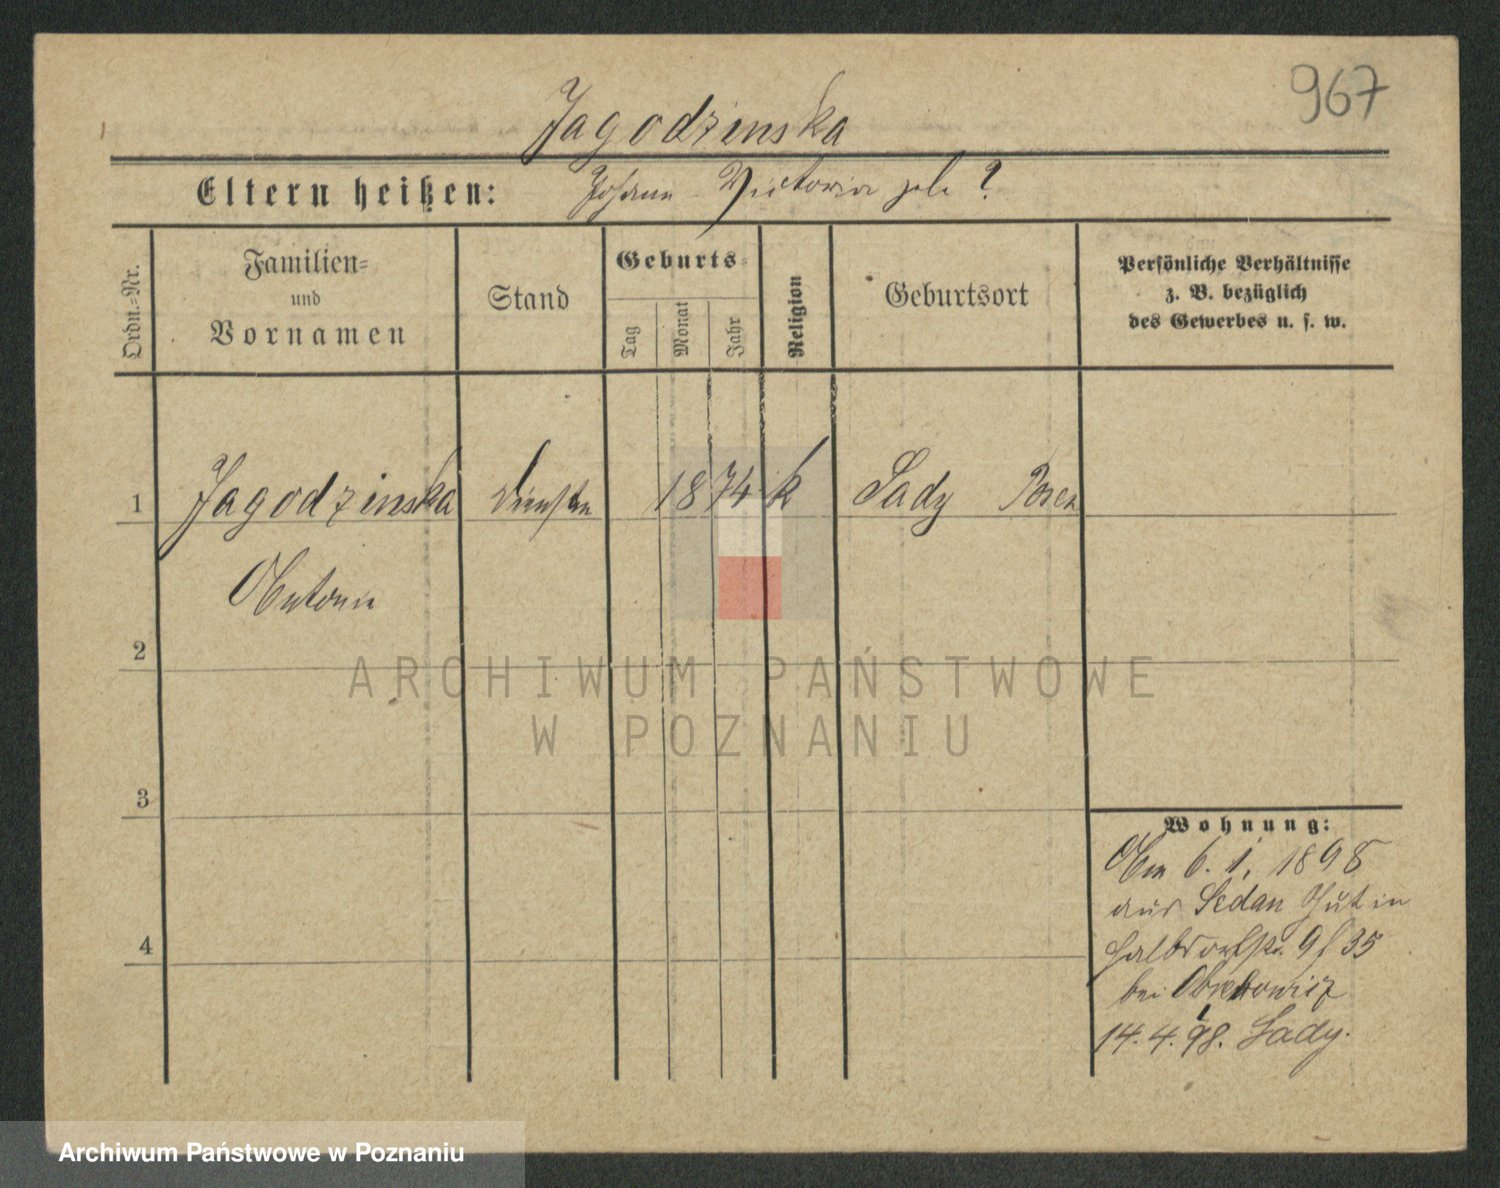 967
Jagodzinska
Eltern heißen: Johann - Victoria geb ?
Ordn.-Nr.
Familien-
und
Vornamen
Stand
Geburts-
Tag
Monat
Jahr
Religion
Geburtsort
Persönliche Verhältnisse
z. B. bezüglich
des Gewerbes u. s. w.
1 Jagodzinska 1874 k Sady Posen
Antonie
2
3
4
Wohnung:
Am 6. 1. 1898
aus Sedan Gut in
Halbdorfstr. 9 f 35
bei
14. 4. 98. Sady.
ARCHIWUM PAŃSTWOWE
W POZNANIU
Archiwum Państwowe w Poznaniu